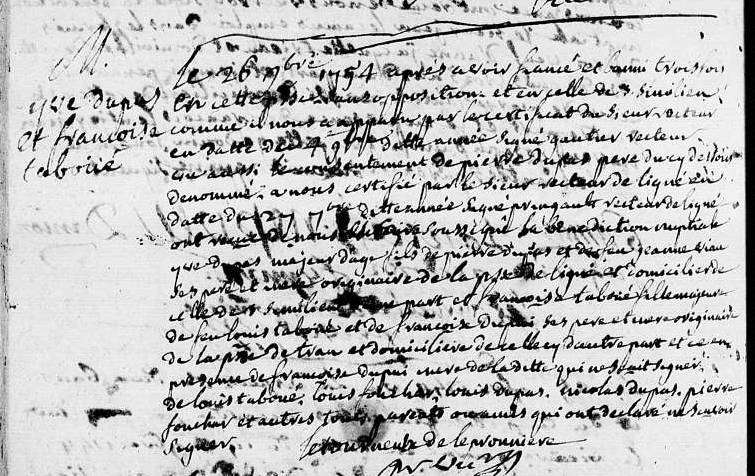 M.
yve dupas
et francoise
taboué
Le 26 9bre 1754 après avoir fiancé et banni trois fois
en cette psse sans opposition et en celle de st similien
comme il nous a apparu par le certificat du sieur recteur
en datte du 4 9bre ditte année signé gautier recteur
vu aussi le consentement de pierre dupas pere du cy dessous
denommé a nous certifié par le sieur recteur de ligné en
datte du 27 7bre ditte année signé pringault recteur de ligné
ont reçu de nous soussigné la benediction nuptiale
yve dupas majeur d'age fils de pierre dupas et de feu jeanne viau
ses pere et mere originaire de la psse de ligné et domicilié de
celle de st similien d'une part et francoise taboué fille majeure
de feu louis taboué et de francoise dupui ses pere et mere originaire
de la psse de trau et domiciliere de celle cy d'autre part et ce en
presence de francoise dupui mere de la ditte qui ne scait signer
de louis taboué, louis foucher, louis dupas, nicolas dupas, pierre
foucher et autres touts parents ou amis qui ont declaré ne scavoir
signer.
letourneux de lepronniere